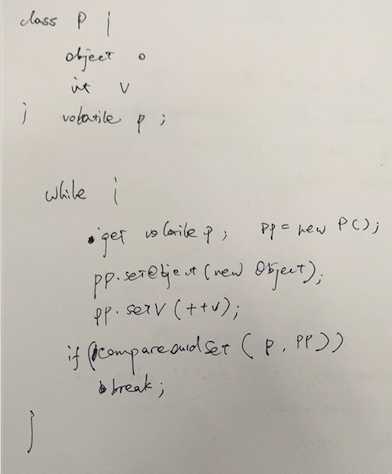 class P {
object o
int v
} volatile p ;
while {
get volatile p ; pp = new P();
pp.setObject(new Object);
pp.setV(++v);
if (compareandSet ( p, pp))
break;
}